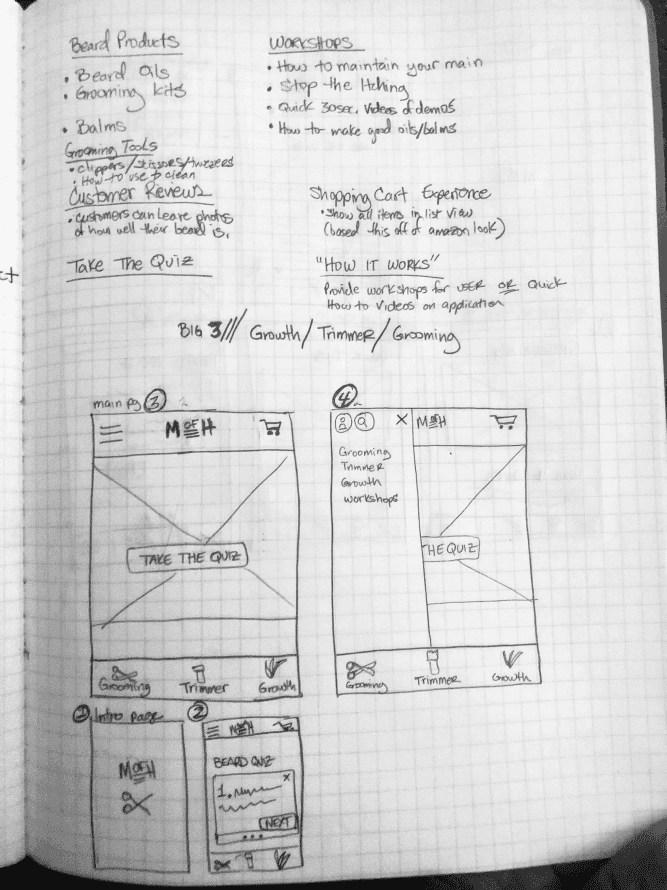 Beard Products
• Beard Oils
• Grooming kits
• Balms
Grooming Tools
• clippers/scissors/tweezers
• How to use & clean
Customer Reviews
• customers can leave photos
of how well their beard is,
Take The Quiz
Workshops
• How to maintain your main
• Stop the Itching
• Quick 30sec. Videos of demos
• How to make good oils/balms
Shopping Cart Experience
• Show all items in list view
(based this off of amazon look)
"HOW IT WORKS"
Provide workshops for USER OR Quick
How to Videos on application
BIG 3/// Growth/Trimmer/Grooming
main pg 3
M OF H
TAKE THE QUIZ
Grooming Trimmer Growth
4
X M OF H
Grooming
Trimmer
Growth
Workshops
HE QUIZ
Grooming Trimmer Growth
1 Intro page
M OF H
2
M OF H
BEARD QUIZ
X
1.
NEXT
ct